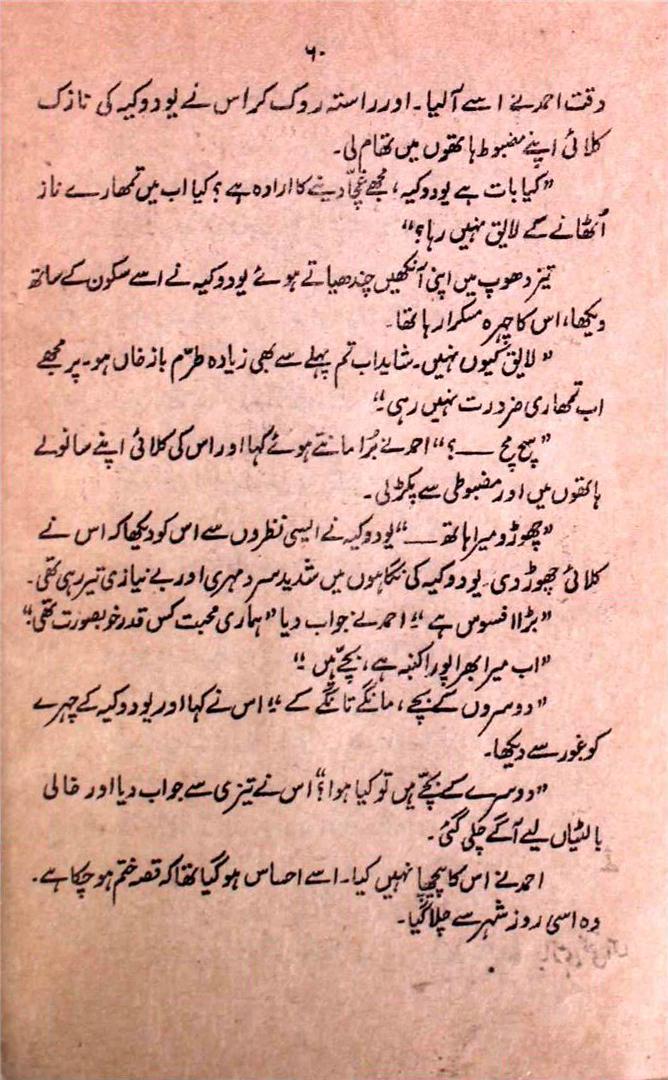 ۶۰
وقت احمد نے اسے آلیا۔ اور راستہ روک کر اس نے یودوکیہ کی نازک
کلائی اپنے مضبوط ہاتھوں میں تھام لی۔
”کیا بات ہے یودوکیہ، مجھے غچّا دینے کا ارادہ ہے؟ کیا اب میں تمھارے ناز
اُٹھانے کے لایق نہیں رہا؟“
تیز دھوپ میں اپنی آنکھیں چندھیاتے ہوئے یودوکیہ نے اسے سکون کے ساتھ
دیکھا، اس کا چہرہ مسکرا رہا تھا۔
”لایق کیوں نہیں۔ شاید اب تم پہلے سے بھی زیادہ طرّم باز خاں ہو۔ پر مجھے
اب تمھاری ضرورت نہیں رہی۔“
”سچ مچ ——؟“ احمد نے بُرا مانتے ہوئے کہا اور اس کی کلائی اپنے سانولے
ہاتھوں میں اور مضبوطی سے پکڑ لی۔
”چھوڑو میرا ہاتھ ——“ یودوکیہ نے ایسی نظروں سے اس کو دیکھا کہ اس نے
کلائی چھوڑ دی۔ یودوکیہ کی نگاہوں میں شدید سرد مہری اور بے نیازی تیر رہی تھی۔
”بڑا افسوس ہے۔“ احمد نے جواب دیا ”ہماری محبت کس قدر خوبصورت تھی!“
”اب میرا بھرا پورا کنبہ ہے، بچّے ہیں۔“
”دوسروں کے بچے، مانگے تانگے کے۔“ اس نے کہا اور یودوکیہ کے چہرے
کو غور سے دیکھا۔
”دوسرے کے بچّے ہیں تو کیا ہوا؟“ اس نے تیزی سے جواب دیا اور خالی
بالٹیاں لیے آگے چلی گئی۔
احمد نے اس کا پیچھا نہیں کیا۔ اسے احساس ہو گیا تھا کہ قصہ ختم ہو چکا ہے۔
وہ اسی روز شہر سے چلا گیا۔